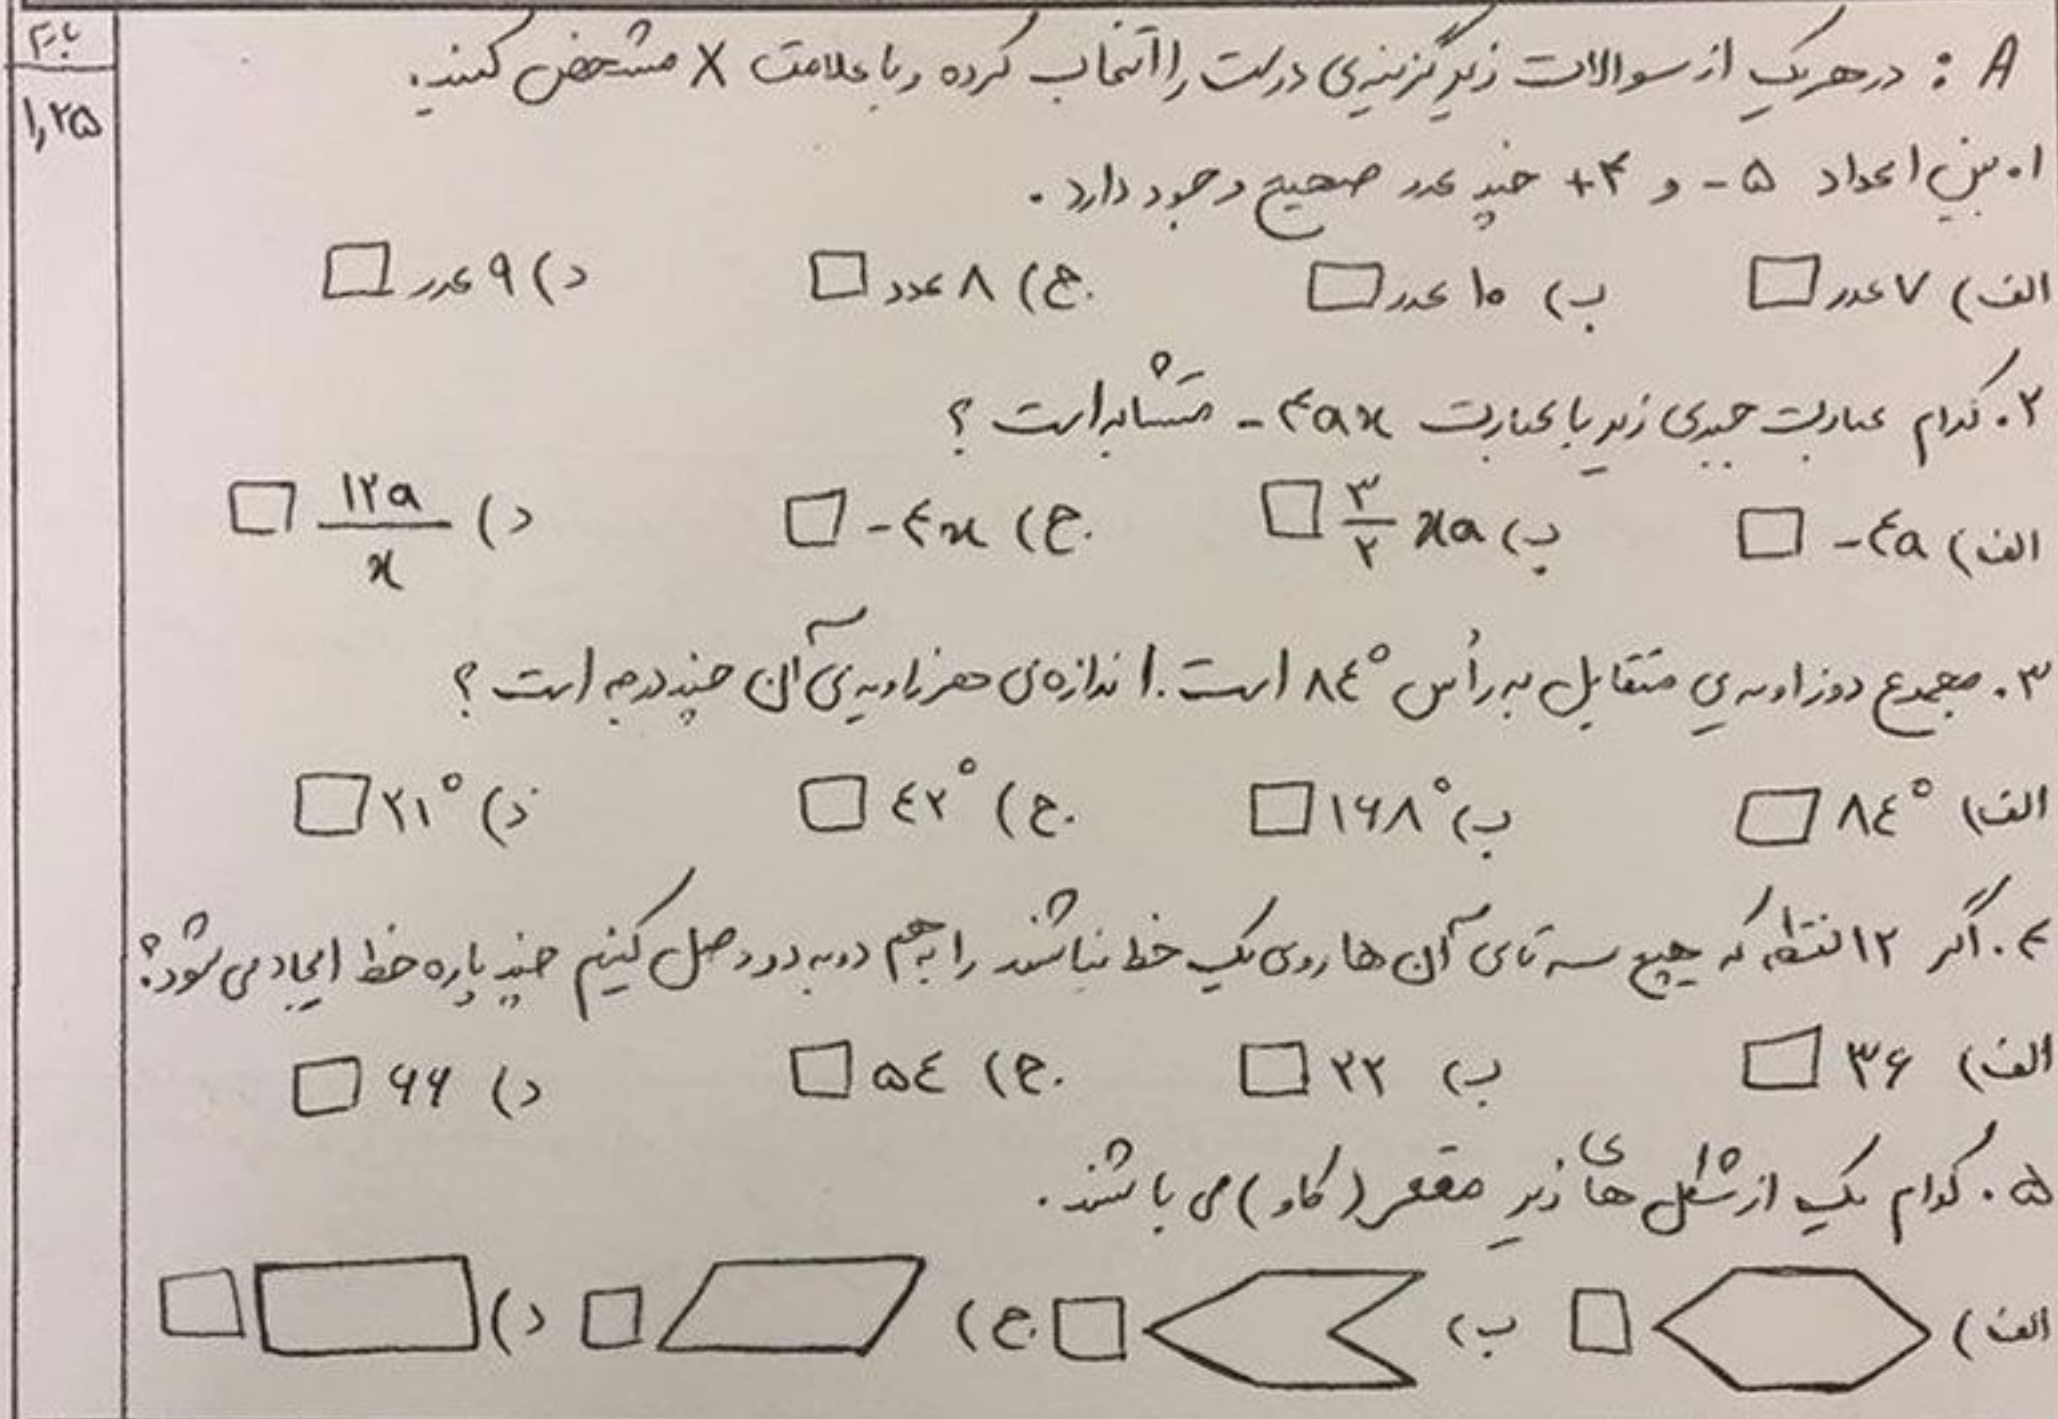 بارم
۱,۲۵
A : در هر یک از سوالات زیر گزینه‌ی درست را انتخاب کرده و با علامت X مشخص کنید.
۱. بین اعداد ۵- و ۴+ چند عدد صحیح وجود دارد.
الف) ۷ عدد □ ب) ۱۰ عدد □ ج) ۸ عدد □ د) ۹ عدد □
۲. کدام عبارت جبری زیر با عبارت -۴ax متشابه است ؟
الف) -۴a □ ب) ۳/۲ xa □ ج) -۴x □ د) ۱۲a/x □
۳. مجموع دو زاویه‌ی متقابل به رأس ۸۴° است. اندازه‌ی هر زاویه‌ی آن چند درجه است ؟
الف) ۸۴° □ ب) ۱۶۸° □ ج) ۴۲° □ د) ۲۱° □
۴. اگر ۱۲ نقطه که هیچ سه تای آن ها روی یک خط نباشند را به هم دو به دو وصل کنیم چند پاره خط ایجاد می شود؟
الف) ۳۶ □ ب) ۲۲ □ ج) ۵۴ □ د) ۶۶ □
۵. کدام یک از شکل های زیر مقعر (کاو) می باشند.
الف) □ ب) □ ج) □ د) □